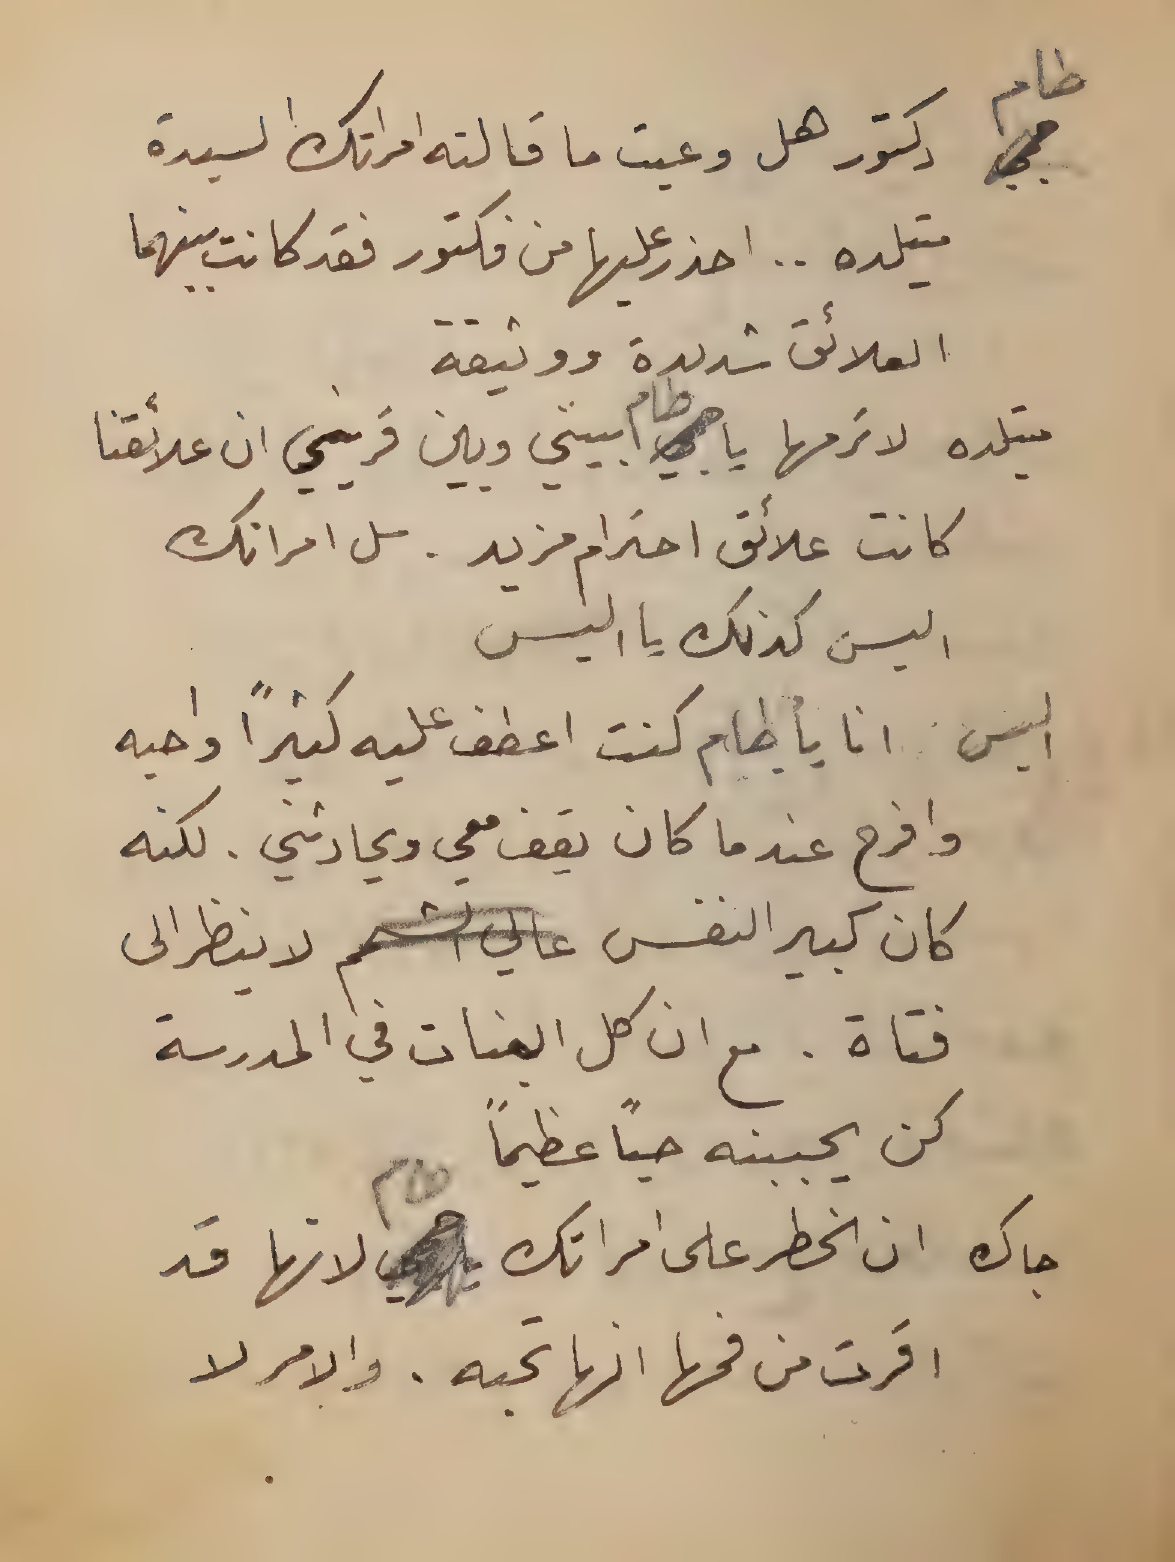 طام
دكتور هل وعيت ما قالته امراتك السيدة
متيلده .. احذر عليها من فكتور فقد كانت بينهما
العلائق شديدة ووثيقة
متيلده لا ترمها يا طام ابيني وبين قريني ان علائقنا
كانت علائق احترام مزيد . سل امراتك
اليس كذلك يا اليس
اليس : انا يا طام كنت اعطف عليه كثيراً واحبه
وافرح عندما كان يقف معي ويحادثني . لكنه
كان كبير النفس عالي الشمم لا ينظر الى
فتاة . مع ان كل البنات في المدرسة
كن يحببنه حباً عظيماً
طام
جاك ان الخطر على امراتك لانها قد
اقرت من فمها انها تحبه . والامر لا